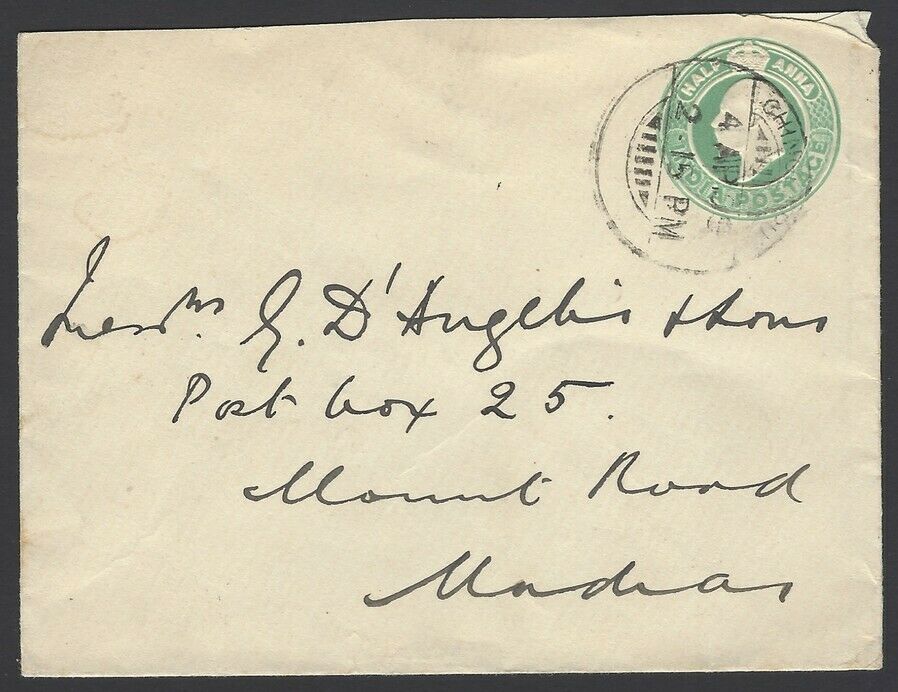 HALF ANNA
INDIA POSTAGE
4 AP
2-15 PM
Messrs. G. D'Angelis & Sons
Post box 25.
Mount Road
Madras